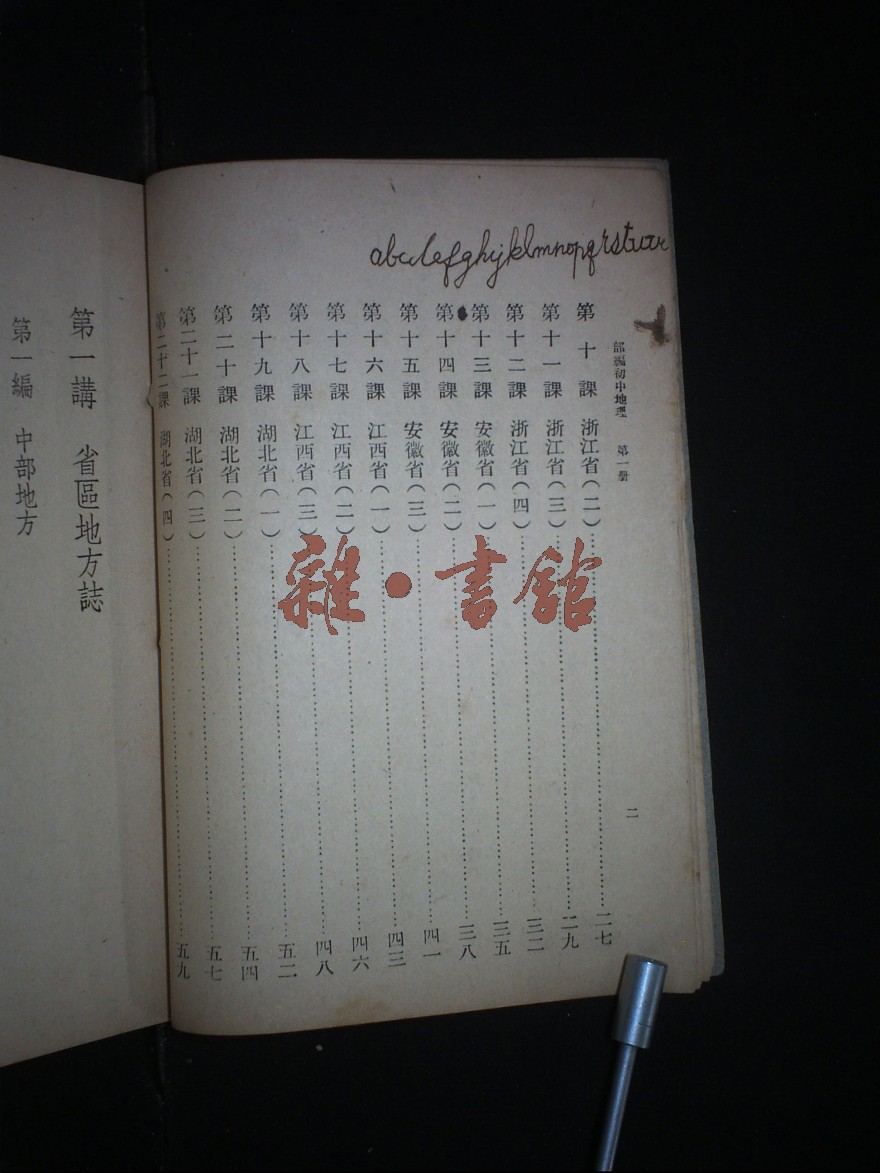 abcdefghijklmnopqrstuvr
部編初中地理 第一册 二
第十課 浙江省(二) 二七
第十一課 浙江省(三) 二九
第十二課 浙江省(四) 三二
第十三課 安徽省(一) 三五
第十四課 安徽省(二) 三八
第十五課 安徽省(三) 四一
第十六課 江西省(一) 四三
第十七課 江西省(二) 四六
第十八課 江西省(三) 四八
第十九課 湖北省(一) 五二
第二十課 湖北省(二) 五四
第二十一課 湖北省(三) 五七
第二十二課 湖北省(四) 五九
第一講 省區地方誌
第一編 中部地方
雜·書館